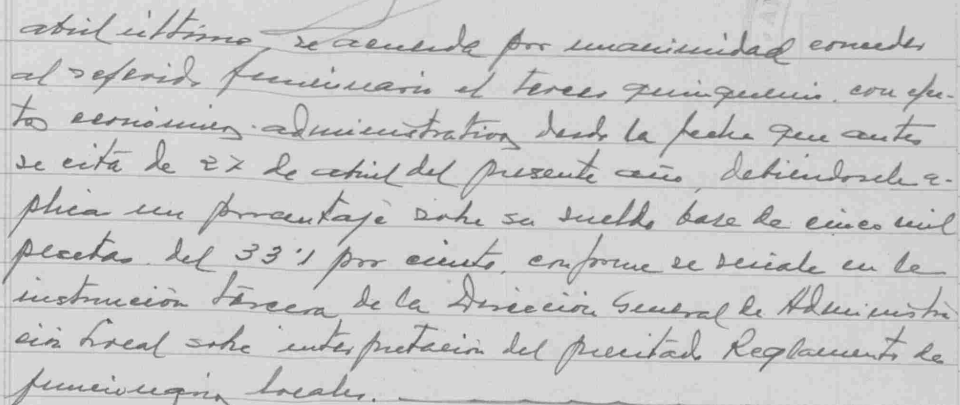 abril último, se acuerda por unanimidad conceder
al referido funcionario el tercer quinquenio, con efec-
tos económicos-administrativos desde la fecha que antes
se cita de 27 de abril del presente año, debiéndosele a-
plicar un porcentaje sobre su sueldo base de cinco mil
pesetas del 33'1 por ciento, conforme se señala en la
instrucción tercera de la Dirección General de Administra
ción Local sobre interpretación del precitado Reglamento de
funcionarios locales.